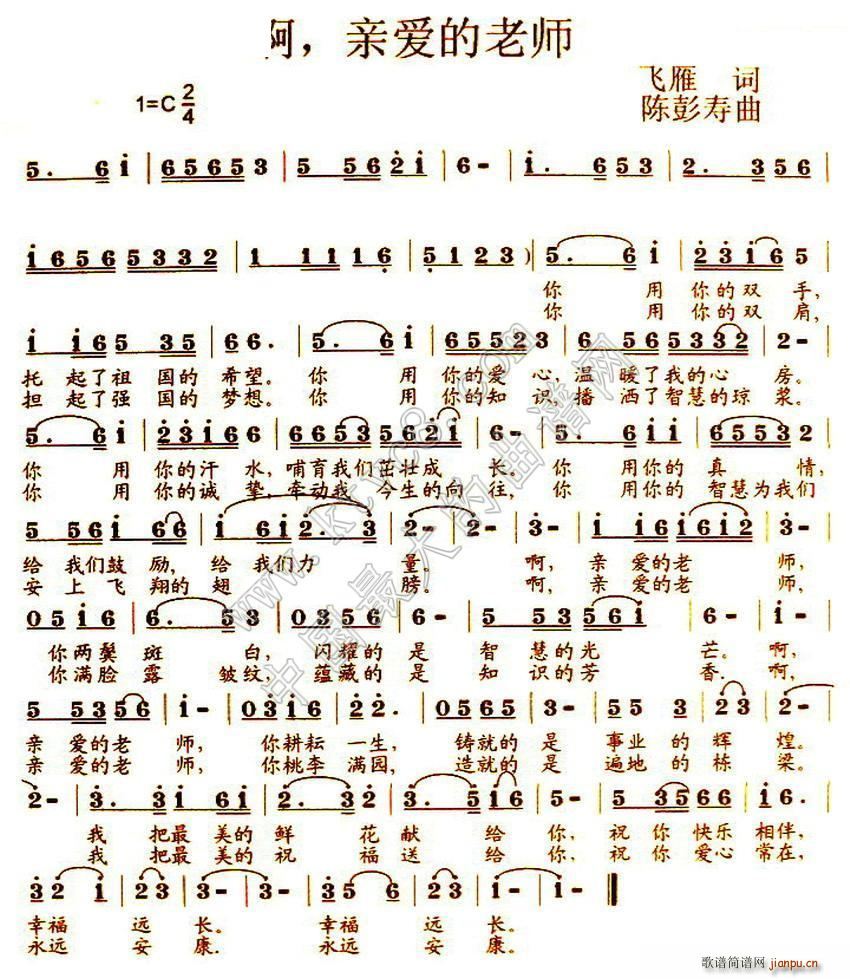 啊，亲爱的老师
飞雁 词
1=C 2/4
陈彭寿曲
5. 6 i | 6 5 6 5 3 | 5 5 6 2 i | 6 - | i. 6 5 3 | 2. 3 5 6 |
i 6 5 6 5 3 3 2 | 1 1 1 1 6 | 5 1 2 3 ) | 5. 6 i | 2 3 i 6 5 |
你 用 你的双 手,
你 用 你的双 肩,
i i 6 5 3 5 | 6 6. | 5. 6 i | 6 5 5 2 3 | 5 6 5 3 3 2 | 2 - |
托 起了祖 国的 希望。你 用 你的爱 心,温 暖了我的心 房。
担 起了强 国的 梦想。你 用 你的知 识,播 洒了智慧的琼 浆。
5. 6 i | 2 3 i 6 6 | 6 6 5 3 5 6 2 i | 6 - | 5. 6 i i | 6 5 5 3 2 |
你 用 你的汗 水,哺育我们茁壮成 长。你 用你的 真 情,
你 用 你的诚 挚,牵动我 今生的向 往,你 用你的 智慧为我们
5 5 6 i 6 6 | i 6 i 2. 3 | 2 - | 2 - | 3 - | i 6 i 6 i 2 | 3 - |
给 我们鼓 励,给 我们力 量。 啊, 亲 爱的老 师,
安 上飞 翔的 翅 膀。 啊, 亲 爱的老 师,
0 5 i 6 | 6. 5 3 | 0 3 5 6 | 6 - | 5 5 3 5 6 i | 6 - | i - |
你两鬓 斑 白, 闪耀的 是 智 慧的光 芒。啊,
你满脸 露 皱纹, 蕴藏的 是 知 识的芳 香.啊,
5 5 3 5 6 | i - | 0 3 i 6 | 2 2. | 0 5 6 5 | 3 - | 5 5 3 | 2 - |
亲 爱的老 师, 你耕耘 一生, 铸就的 是 事业 的 辉 煌。
亲 爱的老 师, 你桃李 满园, 造就的 是 遍地 的 栋 梁。
2 - | 3. 3 i 6 i | 2. 3 2 | 3. 5 i 6 | 5 - | 5 3 5 6 6 | i 6. |
我 把最 美的 鲜 花 献 给 你, 祝 你 快乐 相伴,
我 把最 美的 祝 福 送 给 你, 祝 你 爱心 常在,
3 2 i | 2 3 | 3 - | 3 - | 3 2 2 3 | i - | i - ‖
幸福 远 长。 幸福 远 长。
永远 安 康. 永远 安 康.
www.ktvc8.com
中国最大的曲谱网
歌谱简谱网
jianpu.cn